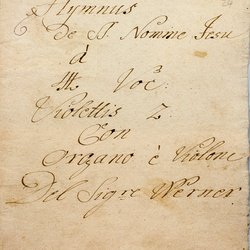 Hymnus
De S. Nomine Jesu
à
4 Voc:
Violettis 2.
Con
Organo è Violone
Del Sigre Werner.